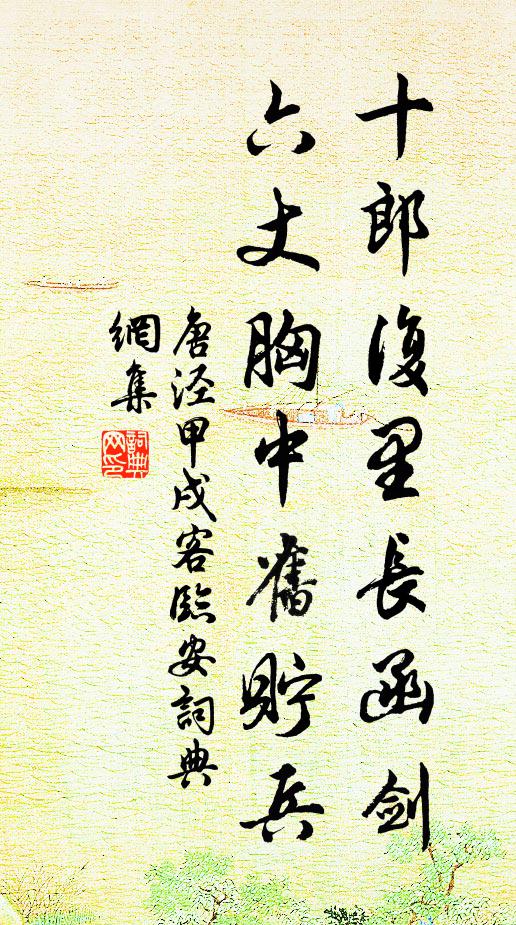 十郎復里長函劍
六丈胸中舊貯兵
唐涇甲戌客臨安詞典
網集
詞典
网印